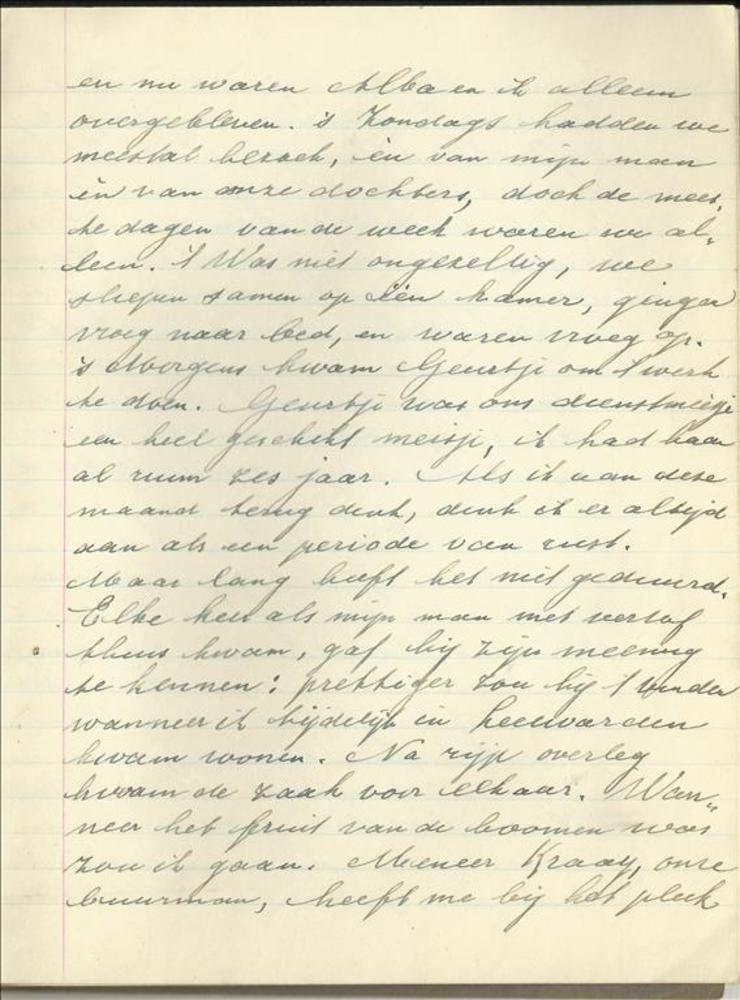 en nu waren Alba en ik alleen
overgebleven. 's Zondags hadden we
meestal bezoek, èn van mijn man
èn van onze dochters, doch de mees„
te dagen van de week waren we al„
leen. 't Was niet ongezellig, we
sliepen samen op één kamer, gingen
vroeg naar bed, en waren vroeg op.
's Morgens kwam Geurtje om 't werk
te doen. Geurtje was ons dienstmeisje
een heel geschikt meisje, ik had haar
al ruim zes jaar. Als ik aan deze
maand terug denk, denk ik er altijd
aan als een periode van rust.
Maar lang heeft het niet geduurd.
Elke keer als mijn man met verlof
thuis kwam, gaf hij zijn meening
te kennen: prettiger zou hij 't vinden
wanneer ik tijdelijk in Leeuwarden
kwam wonen. Na rijp overleg
kwam de zaak voor elkaar. Wan„
neer het fruit van de boomen was
zou ik gaan. Meneer Kraay, onze
buurman, heeft me bij het pluk